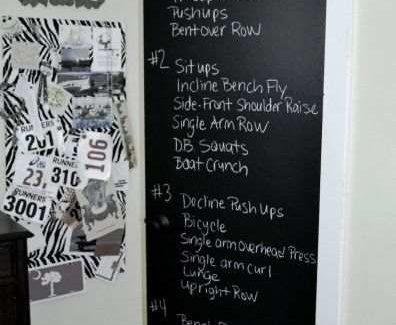 Pushups
Bentover Row
#2 Situps
Incline Bench Fly
Side-Front Shoulder Raise
Single Arm Row
DB Squats
Boat Crunch
#3 Decline Push Ups
Bicycle
Single arm overhead Press
Single arm curl
Lunge
Upright Row
#4
106
310
RUNNERS
3001